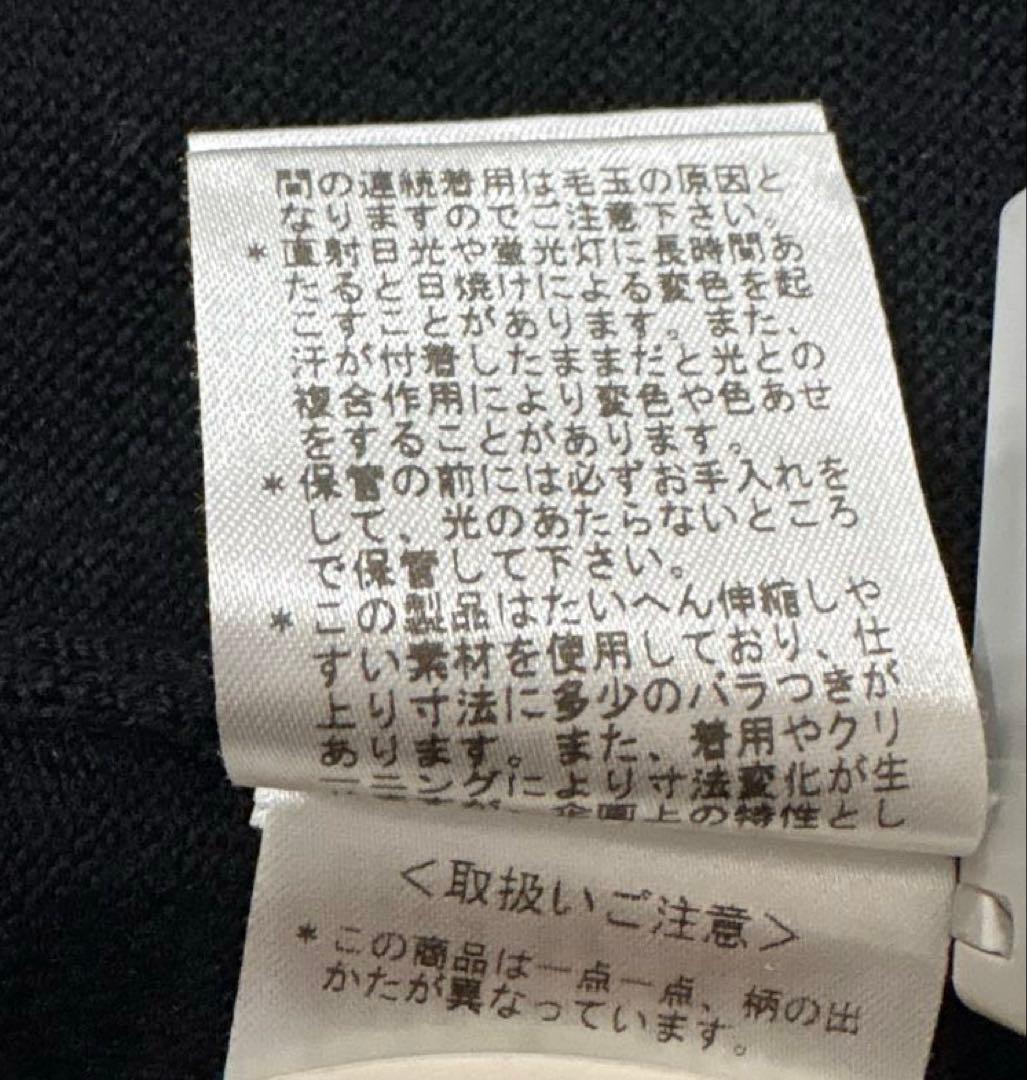 間の連続着用は毛玉の原因と
なりますのでご注意下さい。
* 直射日光や蛍光灯に長時間あ
たると日焼けによる変色を起
こすことがあります。また、
汗が付着したままだと光との
複合作用により変色や色あせ
をすることがあります。
* 保管の前には必ずお手入れを
して、光のあたらないところ
で保管して下さい。
* この製品はたいへん伸縮しや
すい素材を使用しており、仕
上り寸法に多少のバラつきが
あります。また、着用やクリ
ーニングにより寸法変化が生
企画上の特性とし
<取扱いご注意>
* この商品は一点一点、柄の出
かたが異なっています。